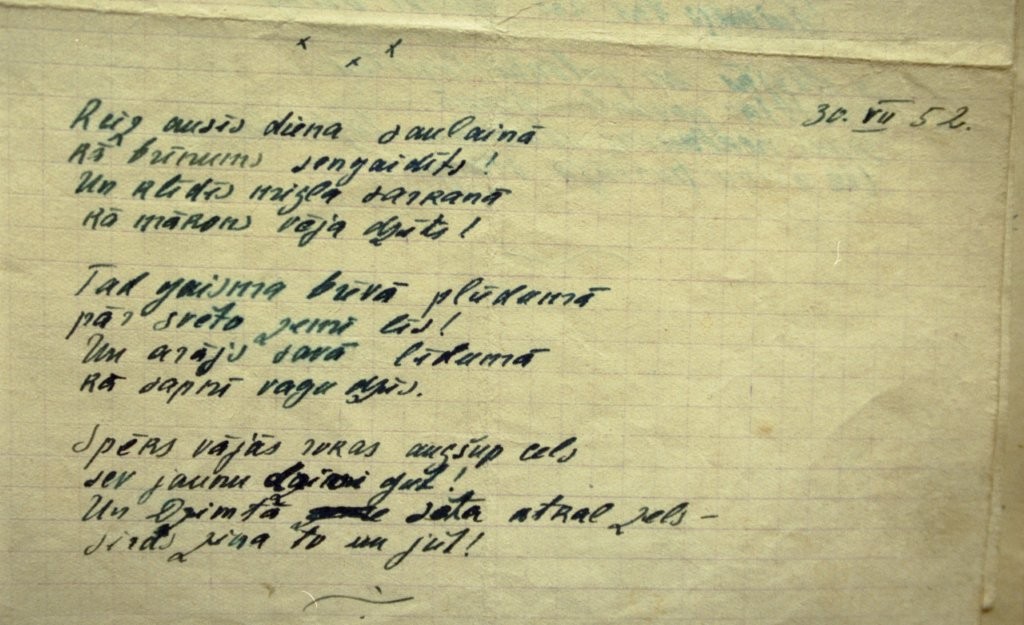 x x x
30. VII 52.
Reiz ausīs diena saulainā
kā brīnums sengaidīts!
Un klīdīs migla sarkanā
kā mākons vēja dzīts!
Tad gaisma brīvā plūdumā
pār svēto zemi līs!
Un arājs savā līdumā
kā sapnī vagu dzīs.
Spēks vājās rokas augšup cels
sev jaunu dzimi gūt!
Un Dzimtā sēta atkal zels —
sirds zina to un jūt!